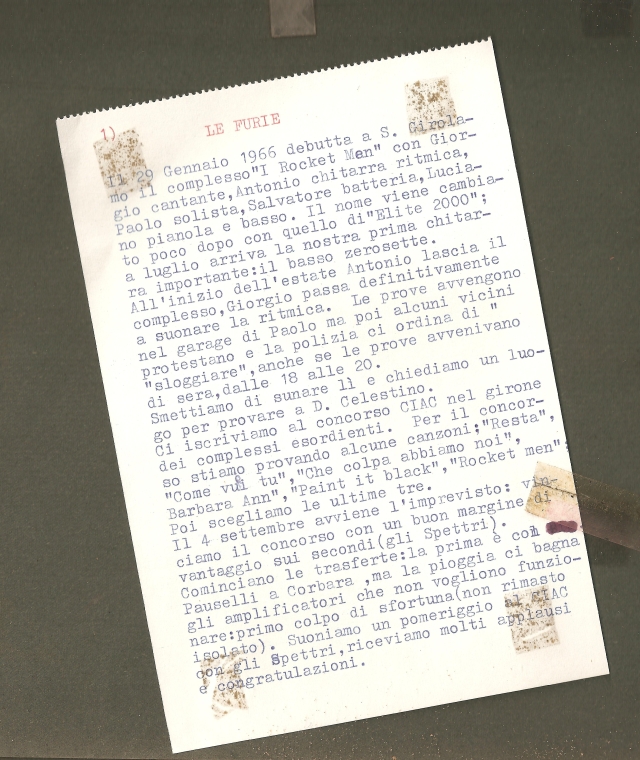 1) LE FURIE
Il 29 Gennaio 1966 debutta a S. Girola-
mo il complesso"I Rocket Men" con Gior-
gio cantante,Antonio chitarra ritmica,
Paolo solista,Salvatore batteria,Lucia-
no pianola e basso. Il nome viene cambia-
to poco dopo con quello di"Elite 2000";
a luglio arriva la nostra prima chitar-
ra importante:il basso zerosette.
All'inizio dell'estate Antonio lascia il
complesso,Giorgio passa definitivamente
a suonare la ritmica. Le prove avvengono
nel garage di Paolo ma poi alcuni vicini
protestano e la polizia ci ordina di "
"sloggiare",anche se le prove avvenivano
di sera,dalle 18 alle 20.
Smettiamo di sunare lì e chiediamo un luo-
go per provare a D. Celestino.
Ci iscriviamo al concorso CIAC nel girone
dei complessi esordienti. Per il concor-
so stiamo provando alcune canzoni:"Resta",
"Come vuoi tu","Che colpa abbiamo noi",
Barbara Ann","Paint it black","Rocket men";
Poi scegliamo le ultime tre.
Il 4 settembre avviene l'imprevisto: vin-
ciamo il concorso con un buon margine di
vantaggio sui secondi(gli Spettri).
Cominciano le trasferte:la prima è con
Pauselli a Corbara ,ma la pioggia ci bagna
gli amplificatori che non vogliono funzio-
nare:primo colpo di sfortuna(non rimasto
isolato). Suoniamo un pomeriggio al CIAC
con gli Spettri,riceviamo molti applausi
e congratulazioni.